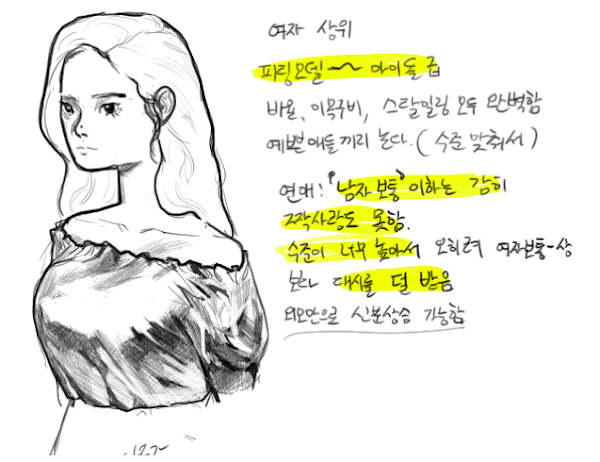 여자 상위
피팅모델 ~ 아이돌급
비율, 이목구비, 스타일링 모두 완벽함
예쁜애들끼리 논다. (수준 맞춰서)
연애: "남자보통" 이하는 감히
짝사랑도 못함.
수준이 너무 높아서 오히려 여자보통-상
보다 대시를 덜 받음
외모만으로 신분상승 가능함